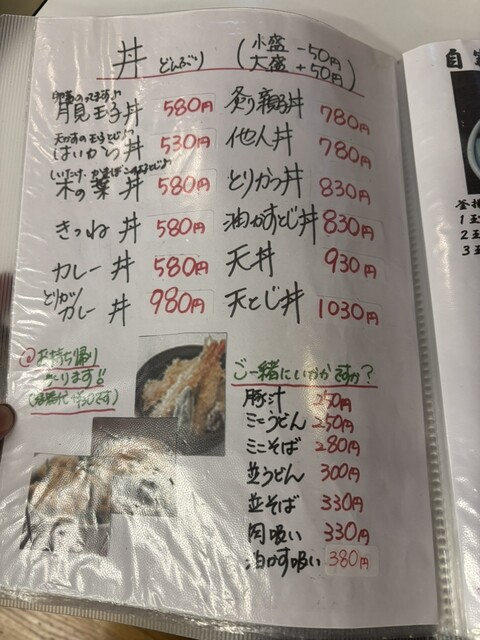 丼 どんぶり
(小盛 -50円
大盛 +50円)
月見玉子丼 580円
天かすの玉子とじ♪
はいから丼 530円
しいたけ・かまぼこの玉子とじ♪
木の葉丼 580円
きつね丼 580円
カレー丼 580円
とりカツ
カレー丼 980円
炙り親子丼 780円
他人丼 780円
とりかつ丼 830円
油かすとじ丼 830円
天丼 930円
天とじ丼 1030円
お持ち帰り
ご一緒にいかかですか?
豚汁 250円
ミニうどん 250円
ミニそば 280円
並うどん 300円
並そば 330円
肉吸い 330円
油かす吸い 380円
自
1玉
2玉
3玉